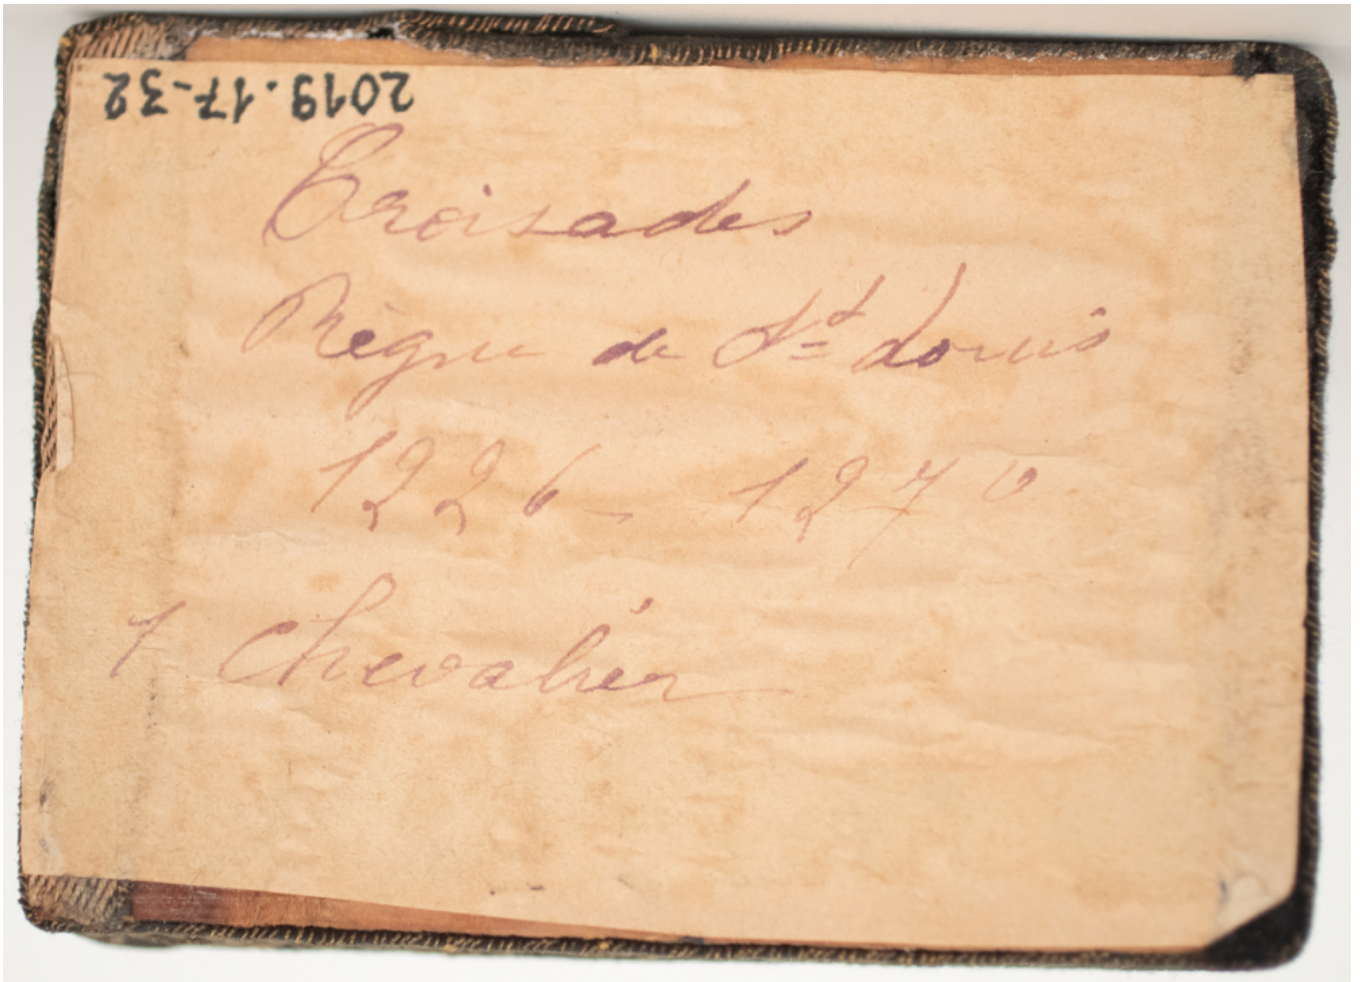 2019.17-32
Croisades
Règne de St Louis
1226 - 1270
1 chevalier